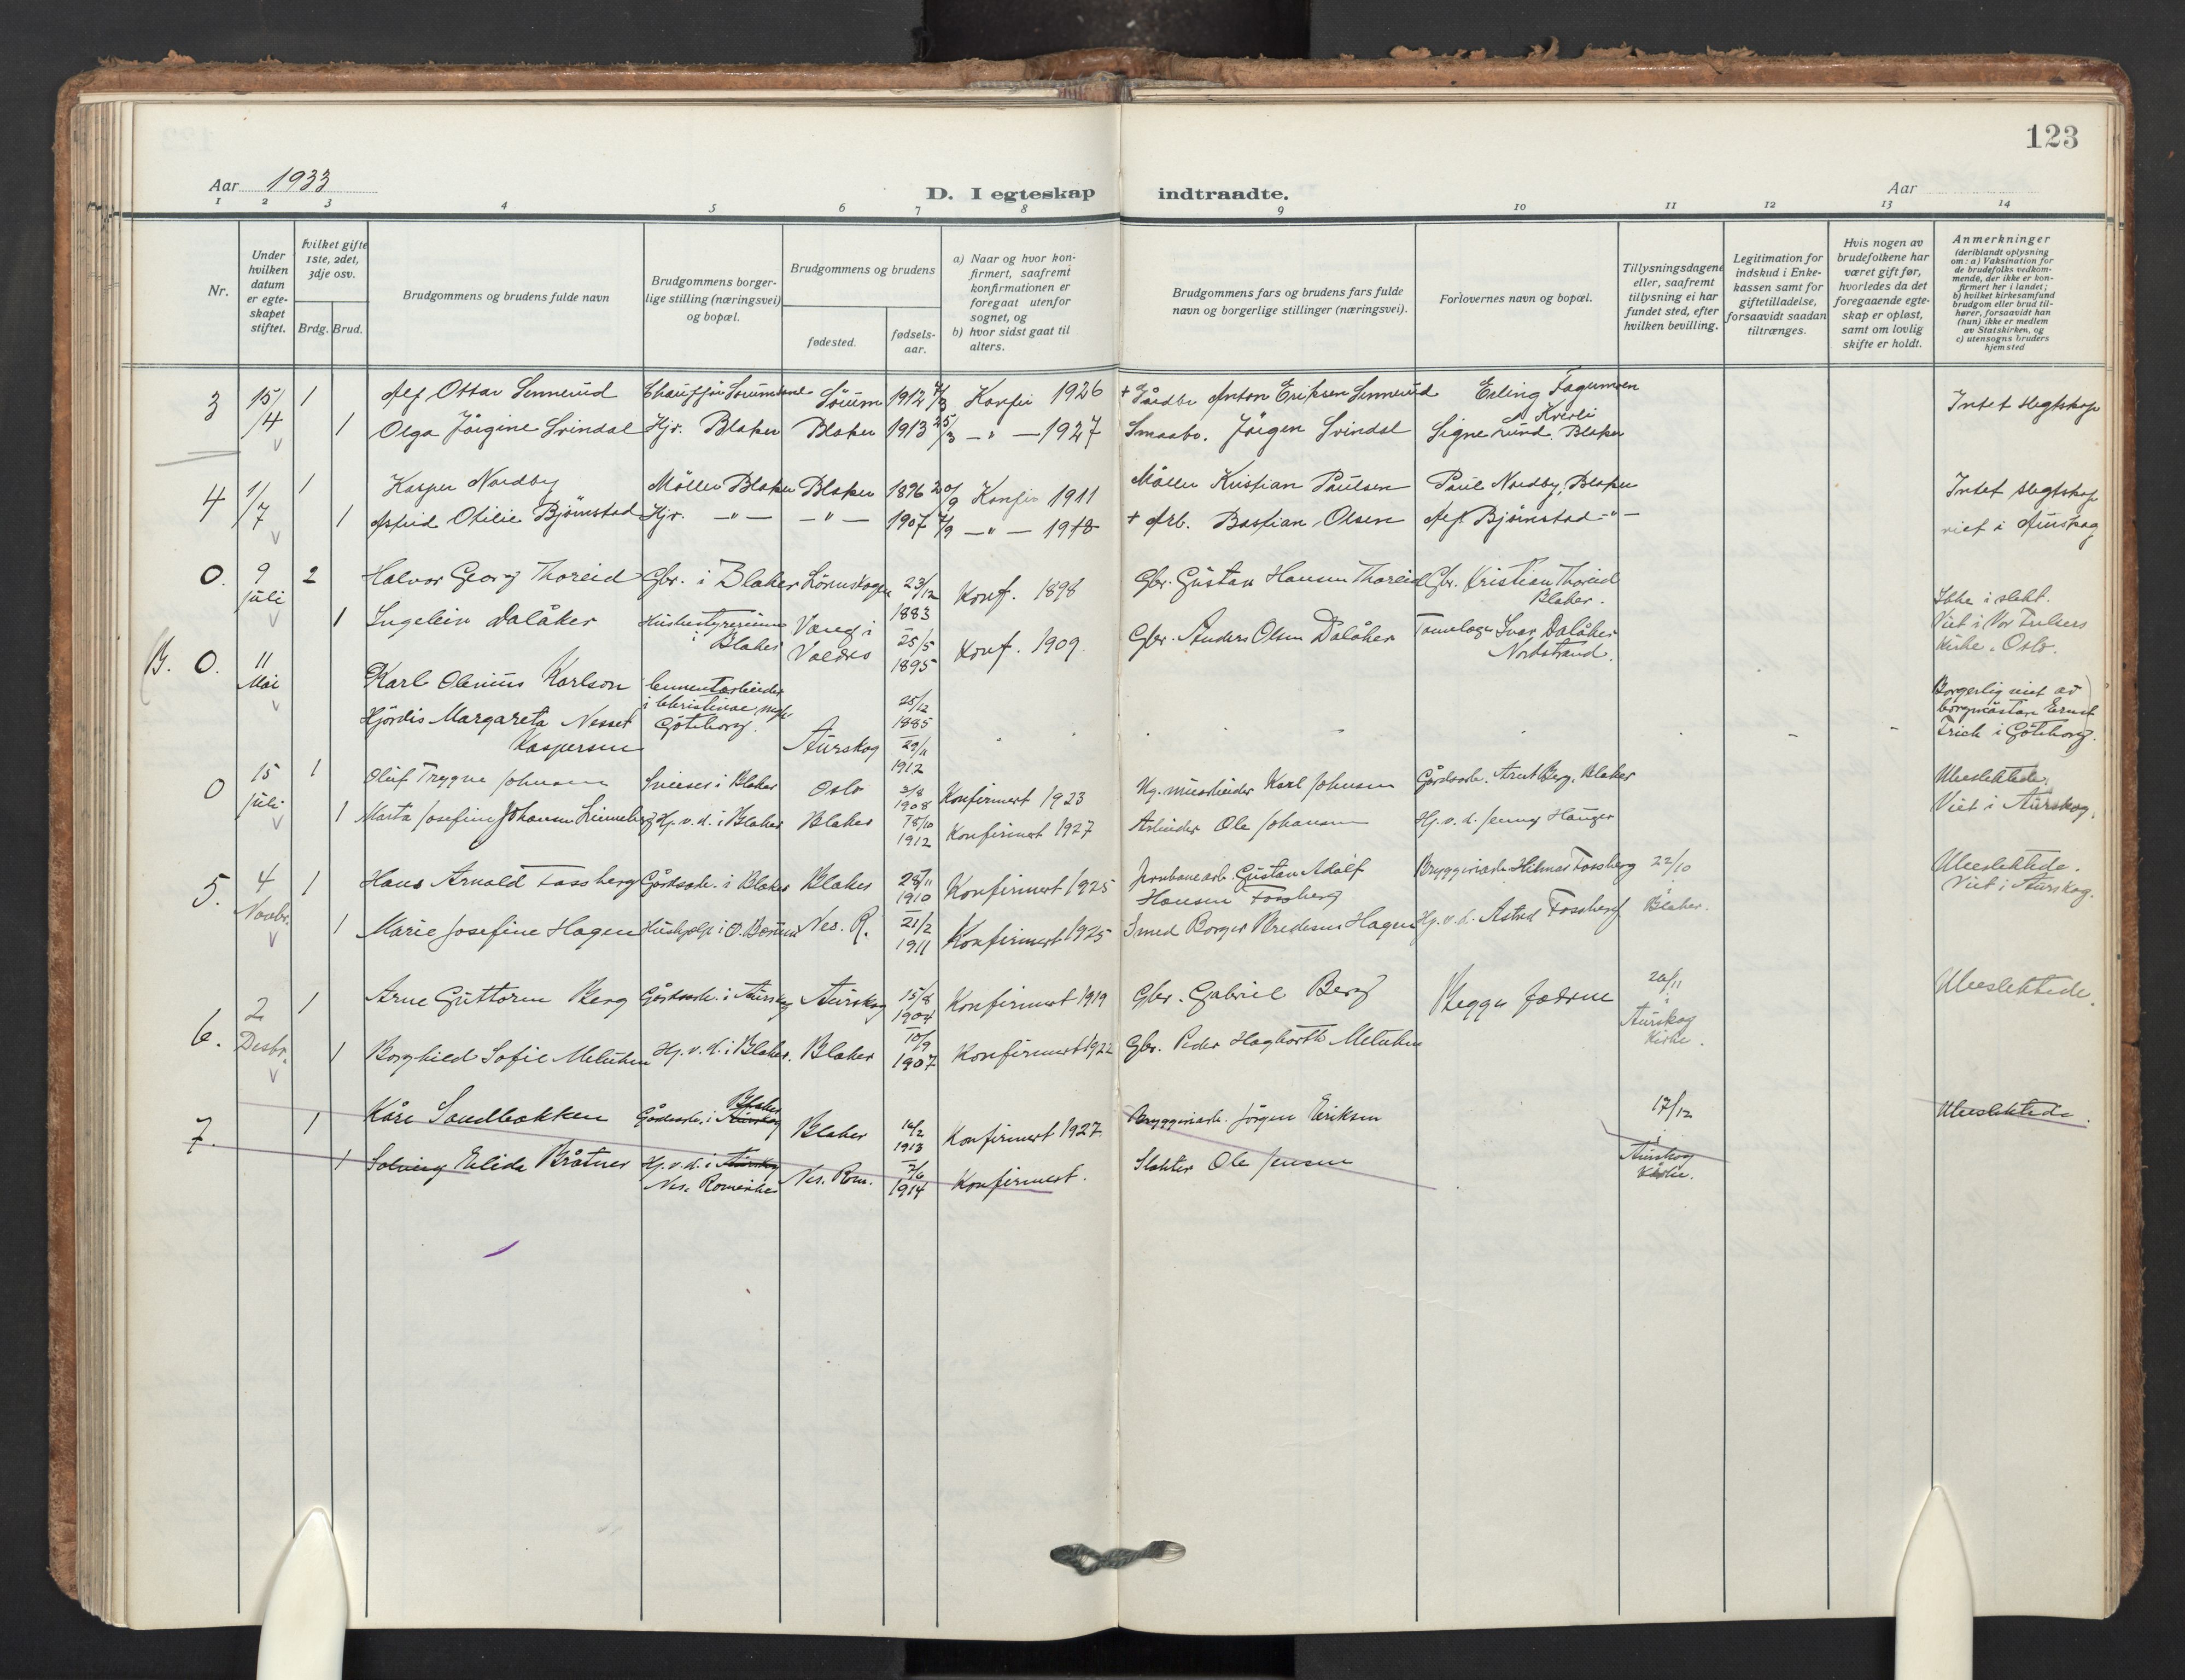 123
Aar 1933
D. I egteskap indtraadte.
Aar
1 2 3 4 5 6 7 8 9 10 11 12 13 14
Nr.
Under hvilken datum er egteskapet stiftet.
hvilket gifte 1ste, 2det, 3dje osv.
Brdg. Brud.
Brudgommens og brudens fulde navn
Brudgommens borgerlige stilling (næringsvei) og bopæl.
Brudgommens og brudens
fødested.
fødselsaar.
a) Naar og hvor konfirmert, saafremt konfirmationen er foregaat utenfor sognet, og
b) hvor sidst gaat til alters.
Brudgommens fars og brudens fars fulde navn og borgerlige stillinger (næringsvei).
Forlovernes navn og bopæl.
Tillysningsdagene eller, saafremt tillysning ei har fundet sted, efter hvilken bevilling.
Legitimation for indskud i Enkekassen samt for giftetilladelse, forsaavidt saadan tiltrænges.
Hvis nogen av brudefolkene har været gift før, hvorledes da det foregaaende egteskap er opløst, samt om lovlig skifte er holdt.
Anmerkninger (deriblandt oplysning om: a) Vaksination for de brudefolks vedkommende, der ikke er konfirmert her i landet; b) hvilket kirkesamfund brudgom eller brud tilhører, forsaavidt han (hun) ikke er medlem av Statskirken, og c) utensogns bruders hjemsted
3 15/4 1 Alf Ottar Sennerud Sørum 1912 Konfir 1926 + Gårdbr Anton Eriksen Sennerud Erling Fagermoen Intet slegtskap
1 Olga Jörgine Svindal Hjv. Blaker Blaker 1913 25/3 — " — 1927 Smaabr. Jörgen Svindal Signe Lund. Blaker
4 1/7 1 Kasper Nordby Møller Blaker Blaker 1896 20/9 Konfir 1911 Møller Kristian Paulsen Paul Nordby, Blaker Intet slegtskap
1 Astrid Otilie Bjørnstad Hjv. — " — — " — 1907 — " — + Arb. Bastian Olsen Alf Bjørnstad — " — viet i Aurskog
0. 9 juli 2 Halvor Georg Thoreid Gbr. i Blaker Lörenskogen 23/12 1883 Konf. 1898 Gbr. Gustav Hansen Thoreid Gbr. Kristian Thoreid Blaker. Ikke i slekt.
1 Ingelein Dalåker Husbestyrerinne i Blaker Vang i Valdres 25/5 1895 Konf. 1909 Gbr. Anders Olsen Dalåker Ivar Dalåker Nordstrand. Viet i Vor Frelsers Kirke, Oslo.
B. 0. 11 Mai Karl Olenius Karlson Cementarbeider i Göteborg. 25/12 1885 Borgerlig viet av borgmästare Ernst Trick i Göteborg.
Hjördis Margareta Nesset Kaspersen Aurskog 29/11 1912
0 15 juli 1 Oluf Trygve Johnsen i Blaker Oslo 2/8 1908 Konfirmert 1923 Karl Johnsen Gårdsarb. Arnt Berg, Blaker Ubeslektede.
1 Marta Josefine Johansen Linneberg Hj. v. d. i Blaker Blaker 18/10 1912 Konfirmert 1927 Arbeider Ole Johansen Hj. v. d. Jenny Hauger Viet i Aurskog.
5. 4 Novbr. 1 Hans Arnold Fossberg Gårdsarb. i Blaker Blaker 28/11 1910 Konfirmert 1925 Jernbanearb. Gustav Adolf Hansen Fossberg Bryggeriarb. Hilmar Fossberg 22/10 i Blaker. Ubeslektede. Viet i Aurskog.
1 Marie Josefine Hagen Hushjelp i Ø. Bærum Nes. R. 21/2 1911 Konfirmert 1925 Smed Borger Bredesen Hagen Hj. v. d. Astrid Fossberg
6. 2 Desbr. 1 Arne Guttorm Berg Gårdsarb. i Aurskog Aurskog 15/8 1904 Konfirmert 1919 Gbr. Gabriel Berg Begge fedrene 26/11 i Aurskog Kirke. Ubeslektede.
1 Borghild Sofie Melulien Hj. v. d. i Blaker. Blaker 10/9 1907 Konfirmert 1922 Gbr. Peder Hagbarth
7. 1 Kåre Sandbakken Gårdsarb. i Aurskog Blaker Blaker 16/2 1913 Konfirmert 1927. Bryggeriarb. Jörgen Eriksen 17/12 i Aurskog Kirke. Ubeslektede.
1 Solveig Elida Bråtner Hj. v. d. i Aurskog Nes. Romerike Nes. Rom. 2/6 1914 Konfirmert. Slakter Ole Jensen